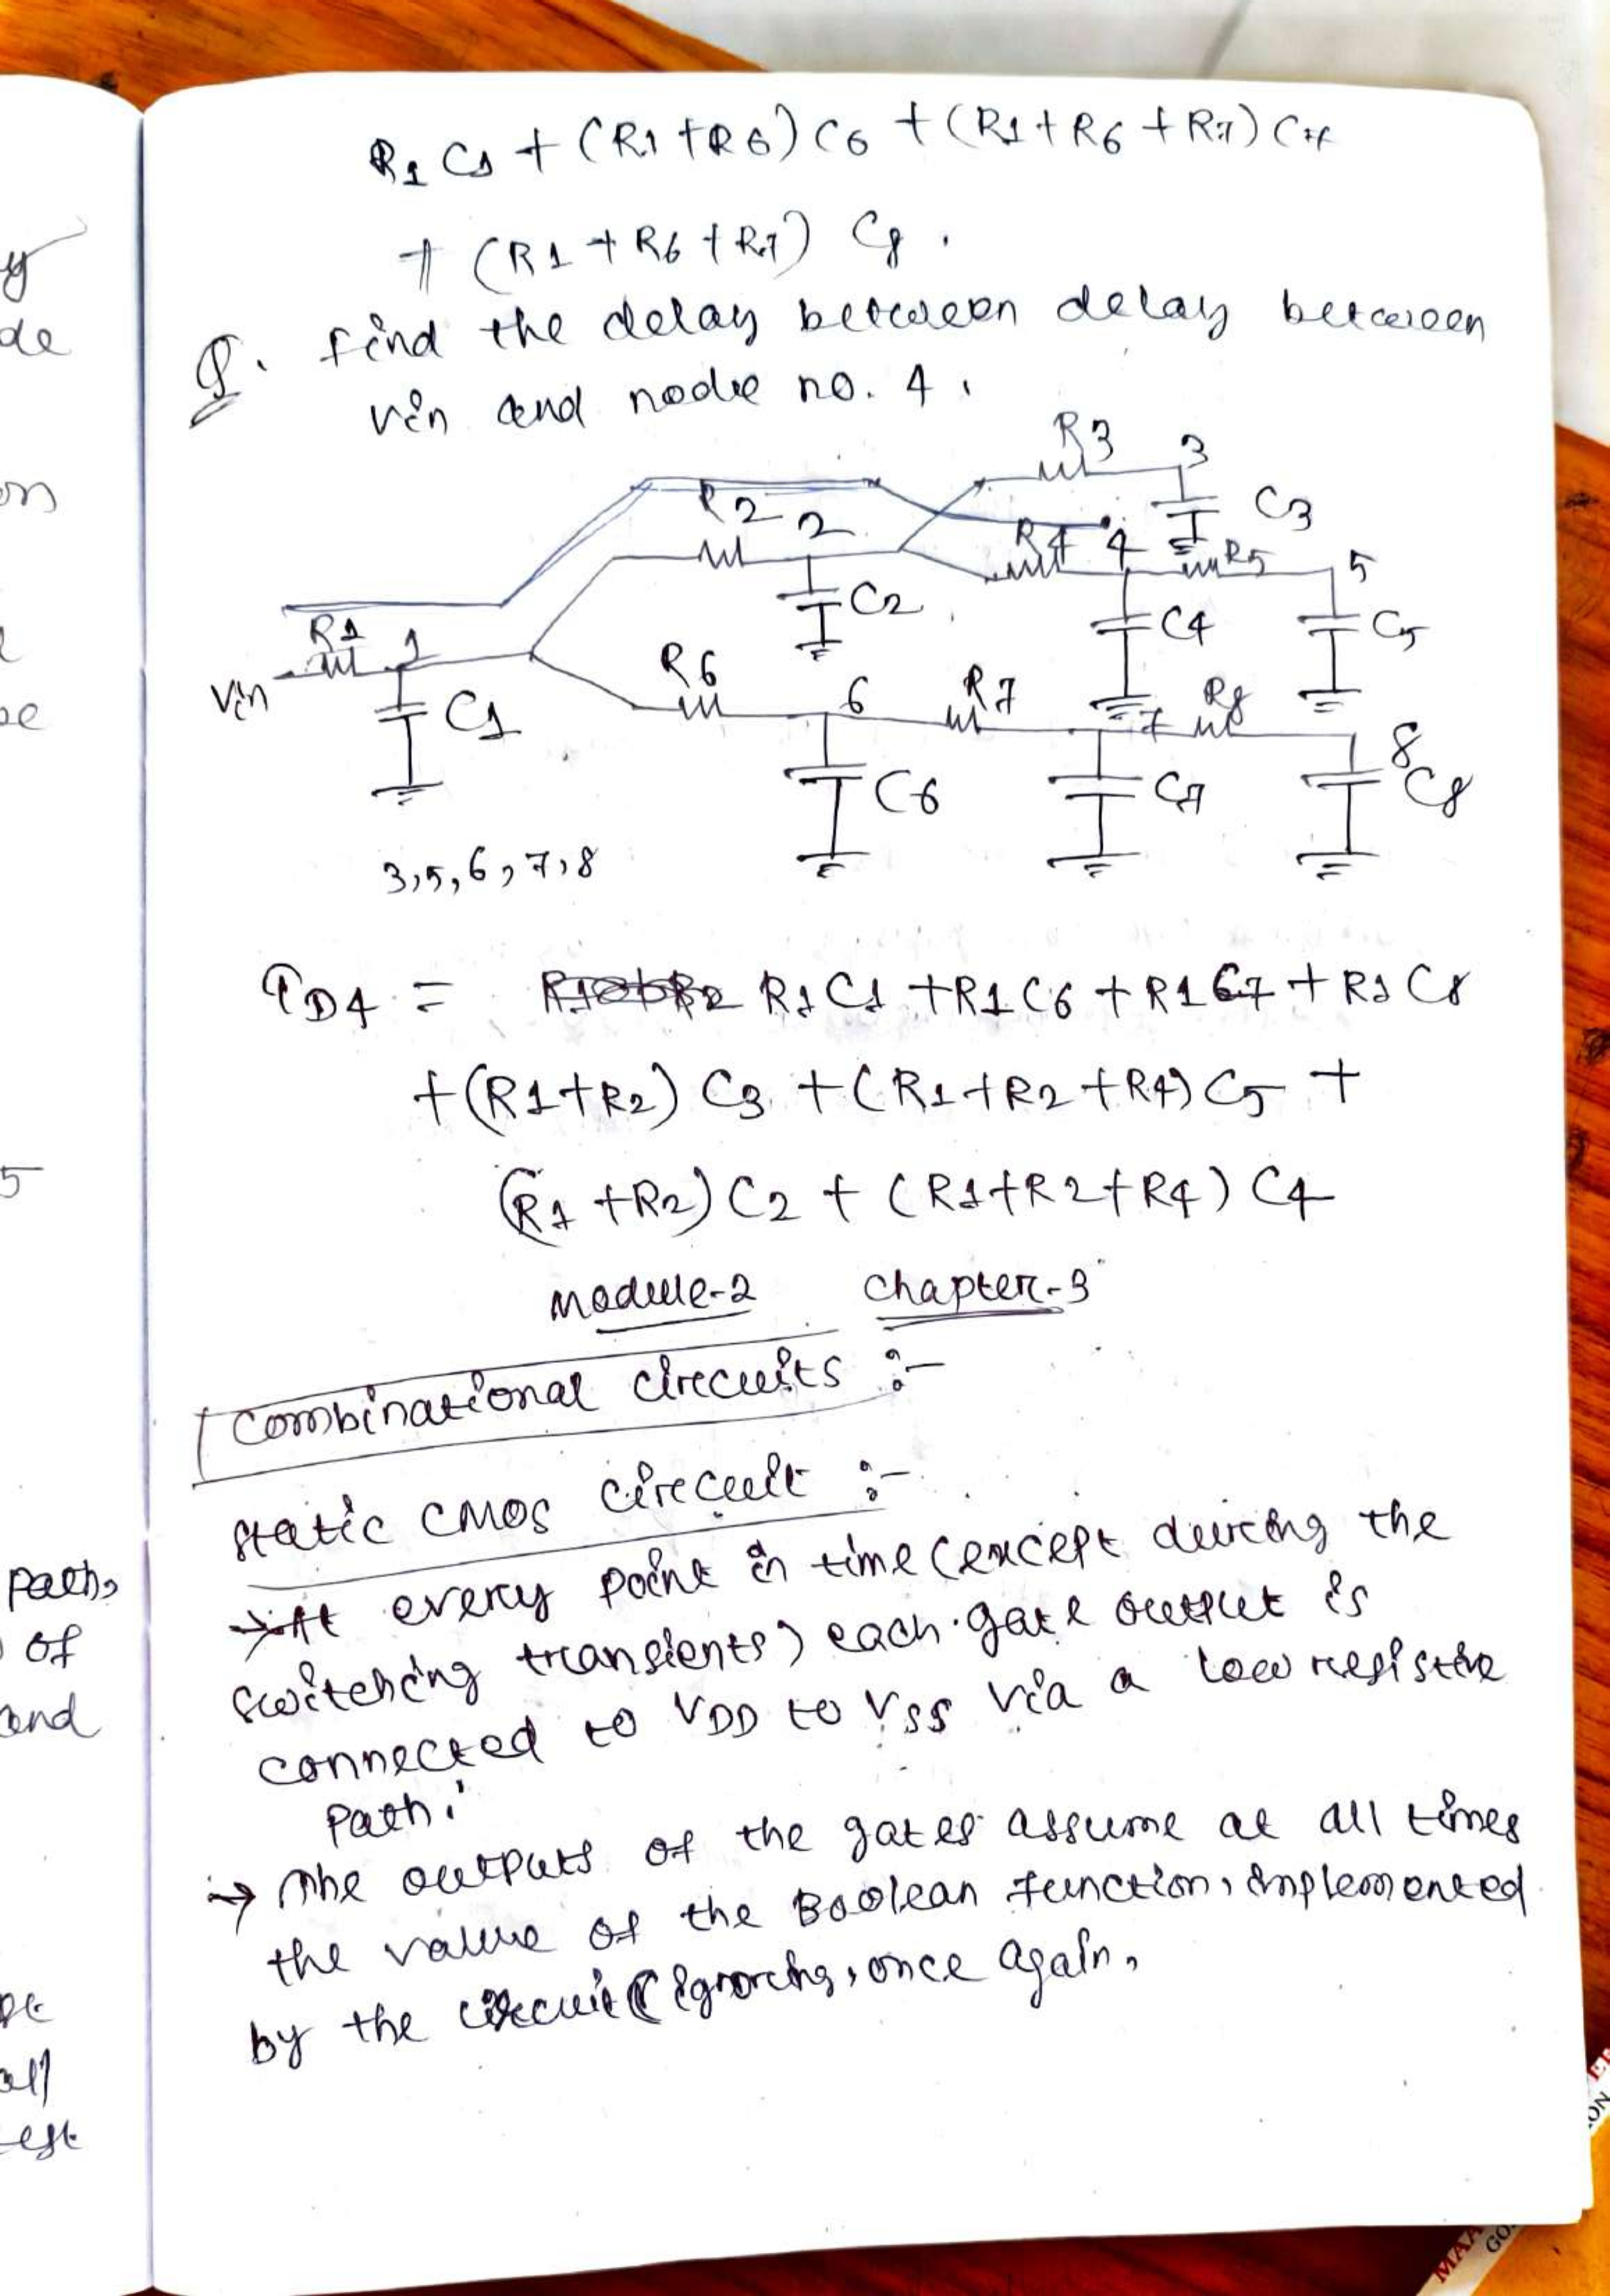 R1 C1 + (R1 + R6) C6 + (R1 + R6 + R7) C7
+ (R1 + R6 + R7) C8.
Q. find the delay between delay between
vin and node no. 4.
R3 3
C3
R2 2
R4 4 R5 5
C2
C4 C5
R1 1
Vin
C1
R6 6 R7 7 R8 8
C6 C7 C8
3,5,6,7,8
τD4 = R1C1 + R1C6 + R1C7 + R1C8
+ (R1+R2) C3 + (R1+R2+R4) C5 +
(R1+R2) C2 + (R1+R2+R4) C4
Module-2 Chapter-3
Combinational circuits :-
static CMOS circuit :-
→ At every point in time (except during the
switching transients) each gate output is
connected to VDD to VSS via a low resistive
path.
→ The outputs of the gates assume at all times
the value of the Boolean function, implemented
by the circuit (ignoring, once again,
y
de
on
be
5
path,
of
and
all
est